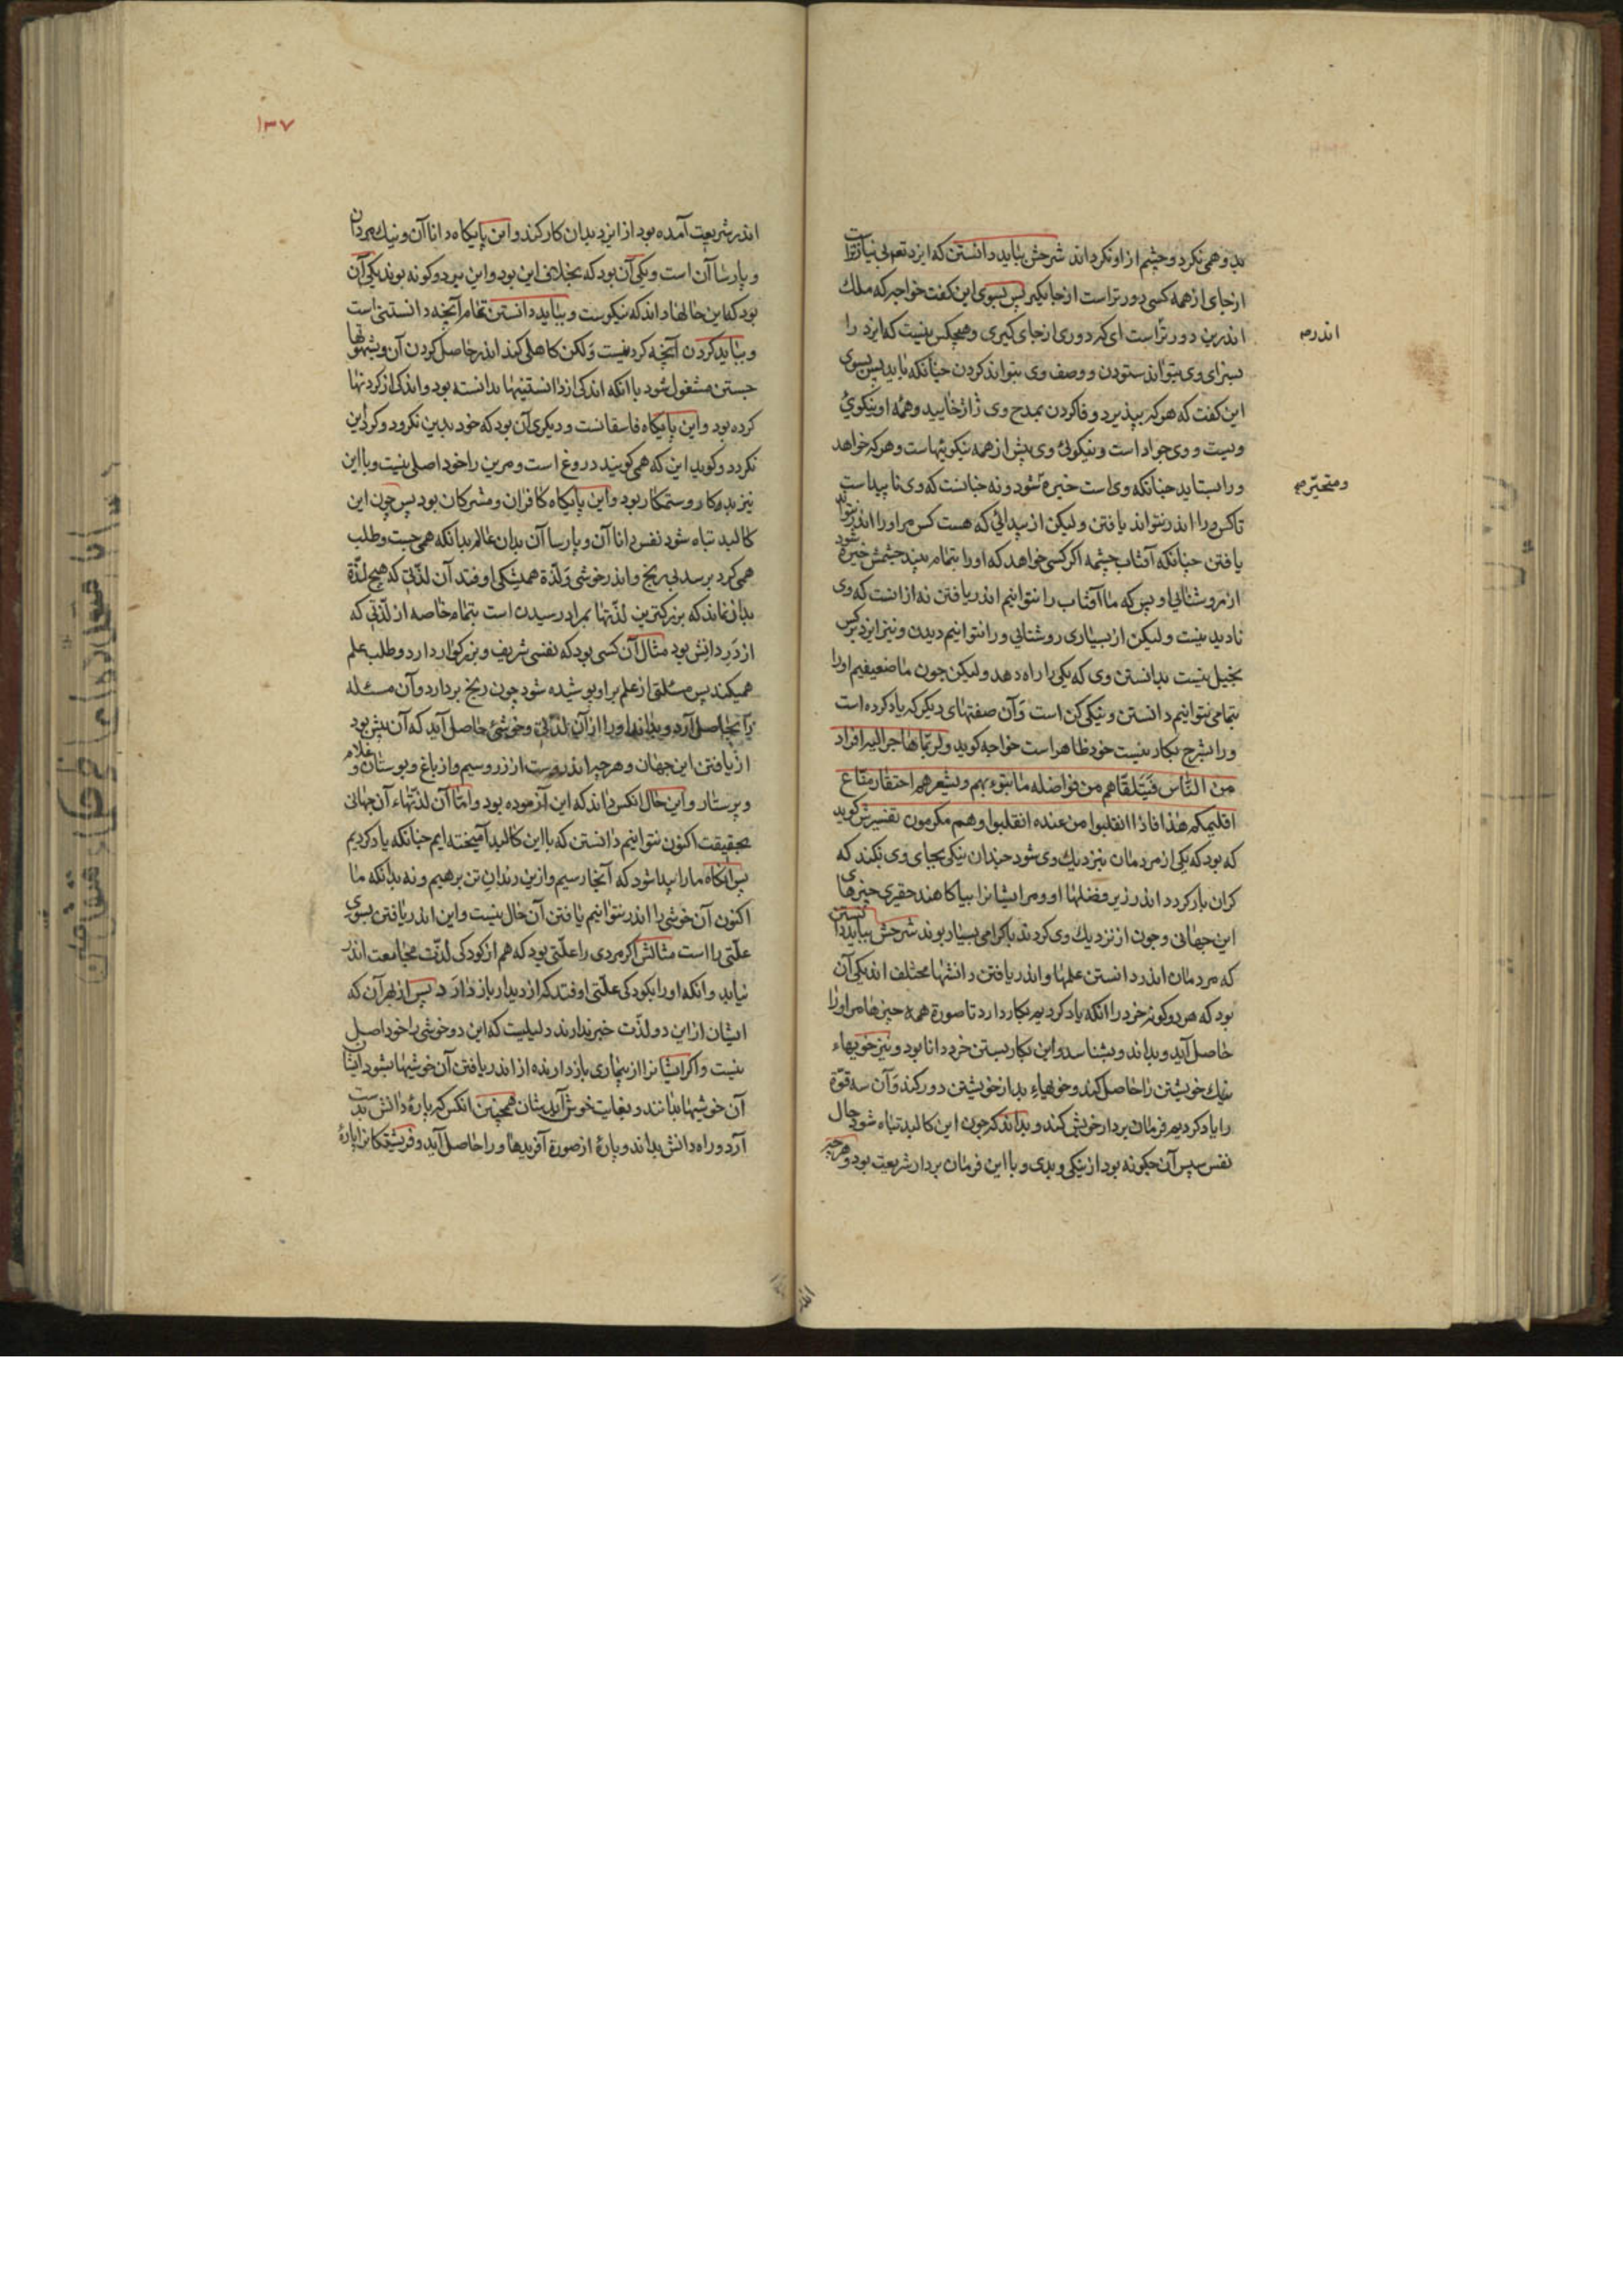 بدو همی نکرد و چشم از او نکرداند شرحش بباید دانستن که ایزد تعم بی نیازتر است
از جای از همه کسی دورتر است از جایکیر پس بسوی این کفت خواجه که ملک
اندرین دورتر است ای که دوری از جای کیری و هیچکس نیست که ایزد را
بسزای وی بتواند ستودن و وصف وی بتواند کردن چنانکه باید پس بسوی
این کفت که هر که بپذیرد وفا کردن بمدح وی ژاژ خایید و همه او نیکویی
ویست و وی جواد است و نیکوئی وی بیش از همه نیکوئیهاست و هر که خواهد
ورا بستاید چنانکه وی است خیره شود و نه چنانست که وی ناپیداست
تا کس ورا اندر نتواند یافتن ولیکن از پیدائی که هست کس مر اورا اندر نتواند
یافتن چنانکه آفتاب چشمه اکر کسی خواهد که اورا بتمام بیند چشمش خیره شود
از روشنائی او پس که ما آفتاب را نتوانیم اندر یافتن نه از انست که وی
نادید نیست ولیکن از بسیاری روشنائی ورا نتوانیم دیدن و نیز ایزد بر کس
بخیل نیست بدانستن وی که یکی را راه دهد ولیکن چون ما ضعیفیم اورا
بتمامی نتوانیم دانستن و نیکی کن است و آن صفتهای دیکر که یاد کرده است
ورا بشرح بکار نیست خود ظاهر است خواجه کوید ولربما هاجر الیه افراد
من الناس فیتلقاهم من فواضله ما ینوء بهم ویشعرهم احتقار متاع
اقلیمکم هذا فاذا انقلبوا من عنده انقلبوا وهم مکرمون تفسیرش کوید
که بود که یکی از مردمان بنزدیک وی شود چندان نیکی بجای وی بکند که
کران بار کردد اندر زیر فضلها او و مر ایشانرا بیاکاهند حقیری چیزهای
این جهانی و چون از نزدیک وی کردند با کرامی بسیار بوند شرحش بباید دانستن
که مردمان اندر دانستن علمها و اندر یافتن دانشها مختلف اند یکی آن
بود که هر دو کونه خرد را انکه یاد کردیم بکار دارد تا صورة همه چیزها مر اورا
حاصل آید و بداند و بشناسد و این بکار بستن خرد دانا بود و نیز خویهاء
نیک خویشتن را حاصل کند و خویهاء بد از خویشتن دور کند و آن سه قوة
را یاد کردیم فرمان بردار خویش کند و بداند که چون این کالبد تباه شود حال
نفس سپس آن چکونه بود از نیکی و بدی و با این فرمان بردار شریعت بود و هر چه
اندرم
ومتحیرم
۱۳۷
اندر شریعت آمده بود از ایزد بدان کار کند و این پایکاه دانا آن و نیک مردان
و پارسا آن است و یکی آن بود که بخلاف این بود و این نیز دو کونه بوند یکی آن
بود که این حالها داند که نیکوست و بباید دانستن تمام آنچه دانستنی است
و بباید کردن آنچه کردنیست ولکن کاهلی کند اندر حاصل کردن آن و بشهوتها
جستن مشغول شود با انکه اندکی از دانستنیها بدانسته بود و اندکی از کردنیها
کرده بود و این پایکاه فاسقانست و دیکری آن بود که خود بدین نکرود و کرد این
نکردد و کوید این که همی کویند دروغ است و مرین را خود اصلی نیست و با این
نیز بدکار و ستمکار بود و این پایکاه کافران و مشرکان بود پس چون این
کالبد تباه شود نفس دانا آن و پارسا آن بدان عالم بدانکه همی جست و طلب
همی کرد برسد بی رنج و اندر خوشی و لذة همیشکی اوفتد آن لذتی که هیچ لذة
بدان نماند که بزرکترین لذتها بمراد رسیدن است بتمام خاصه از لذتی که
از در دانش بود مثال آن کسی بود که نفسی شریف و بزرکوار دارد و طلب علم
همیکند پس مسئلتی از علم بر او پوشیده شود چون رنج بردارد و آن مسئله
را بحاصل آرد و بداند اورا از آن لذتی و خوشئی حاصل آید که آن بیش بود
از یافتن این جهان و هر چه اندروست از زر و سیم و از باغ و بوستان و غلام
و پرستار و این حال انکس داند که این آزموده بود و امّا آن لذتهاء آن جهانی
بحقیقت اکنون نتوانیم دانستن که با این کالبد آمیخته ایم چنانکه یاد کردیم
پس آنکاه ما را پیدا شود که آنجا رسیم و ازین زندان تن برهیم و نه بدانکه ما
اکنون آن خوشی را اندر نتوانیم یافتن آن حال نیست و این اندر یافتن بسوی
علتی را است مثالش اکر مردی را علتی بود که هم از کودکی لذت مجامعت اندر
نیابد و انکه اورا بکودکی علتی اوفتد که از دیدار باز دارد پس از بهر آن که
ایشان از این دو لذت خبر ندارند دلیلیست که این دو خوشی را خود اصل
نیست و اکر ایشانرا از بیماری باز دارنده از اندر یافتن آن خوشیها بشود ایشان
آن خوشیها بدانند و بغایت خوش آیدشان همچنین انکس که پارهٔ دانش بدست
آرد و راه دانش بداند و پارهٔ از صورة آفریدها ورا حاصل آید و فریشتکانرا پارهٔ